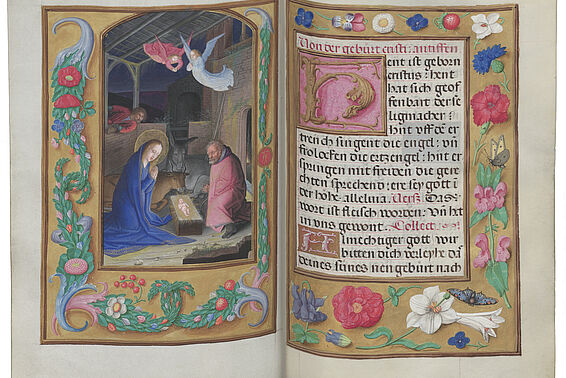 Von der geburt cristi: antiffen
Hent ist geborn
cristus: hent
hat sich geof
fenbart der se
ligmacher:
hint vff de er
treich singent die engel: vn
frolocken die ertzengel: hint er
springen mit freiden die gere
chten sprechend: ere sey gott i
der höhe alleluia. Vers: Das
wort ist fleisch worden. Vn hat
in vns gewont. Collect
Almechtiger gott wir
bitten dich verleyhe da
deines sunes nen geburt nach